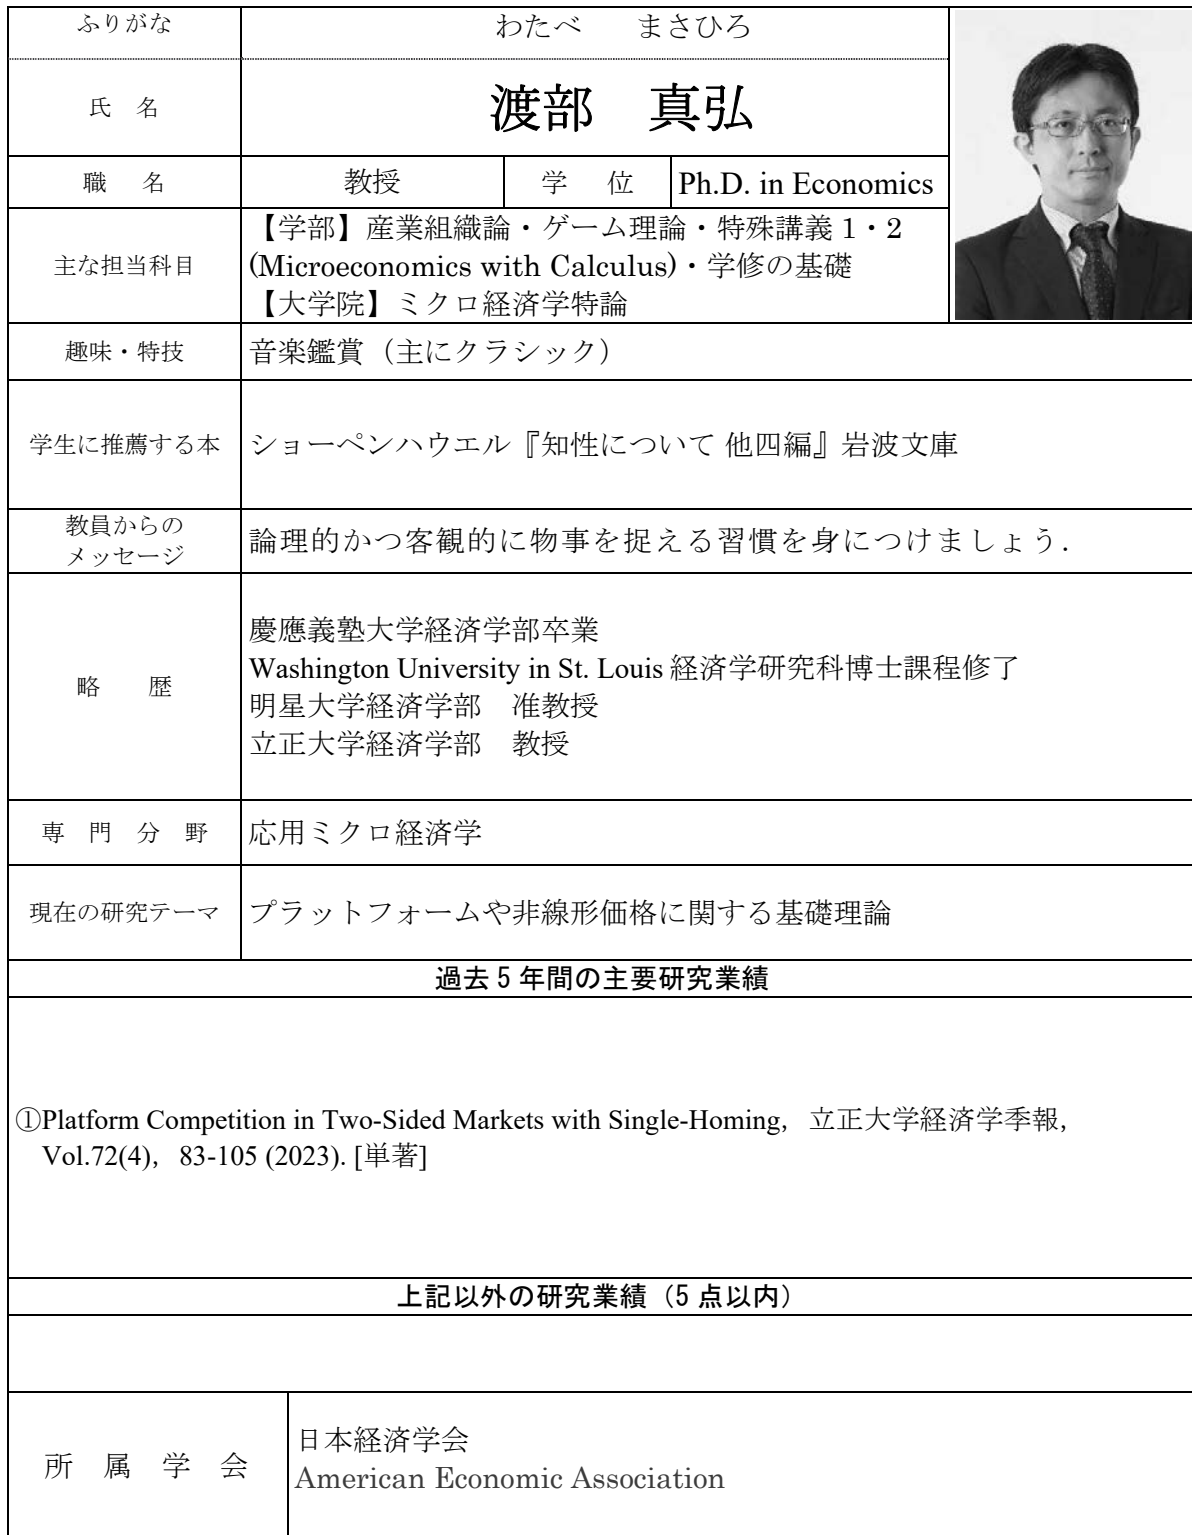 ふりがな
わたべ　まさひろ
氏 名
渡部　真弘
職 名
教授
学 位
Ph.D. in Economics
主な担当科目
【学部】産業組織論・ゲーム理論・特殊講義 1・2
(Microeconomics with Calculus)・学修の基礎
【大学院】ミクロ経済学特論
趣味・特技
音楽鑑賞（主にクラシック）
学生に推薦する本
ショーペンハウエル『知性について 他四編』岩波文庫
教員からの
メッセージ
論理的かつ客観的に物事を捉える習慣を身につけましょう．
略 歴
慶應義塾大学経済学部卒業
Washington University in St. Louis 経済学研究科博士課程修了
明星大学経済学部　准教授
立正大学経済学部　教授
専 門 分 野
応用ミクロ経済学
現在の研究テーマ
プラットフォームや非線形価格に関する基礎理論
過去 5 年間の主要研究業績
①Platform Competition in Two-Sided Markets with Single-Homing，立正大学経済学季報，
Vol.72(4)，83-105 (2023). [単著]
上記以外の研究業績（5 点以内）
所 属 学 会
日本経済学会
American Economic Association